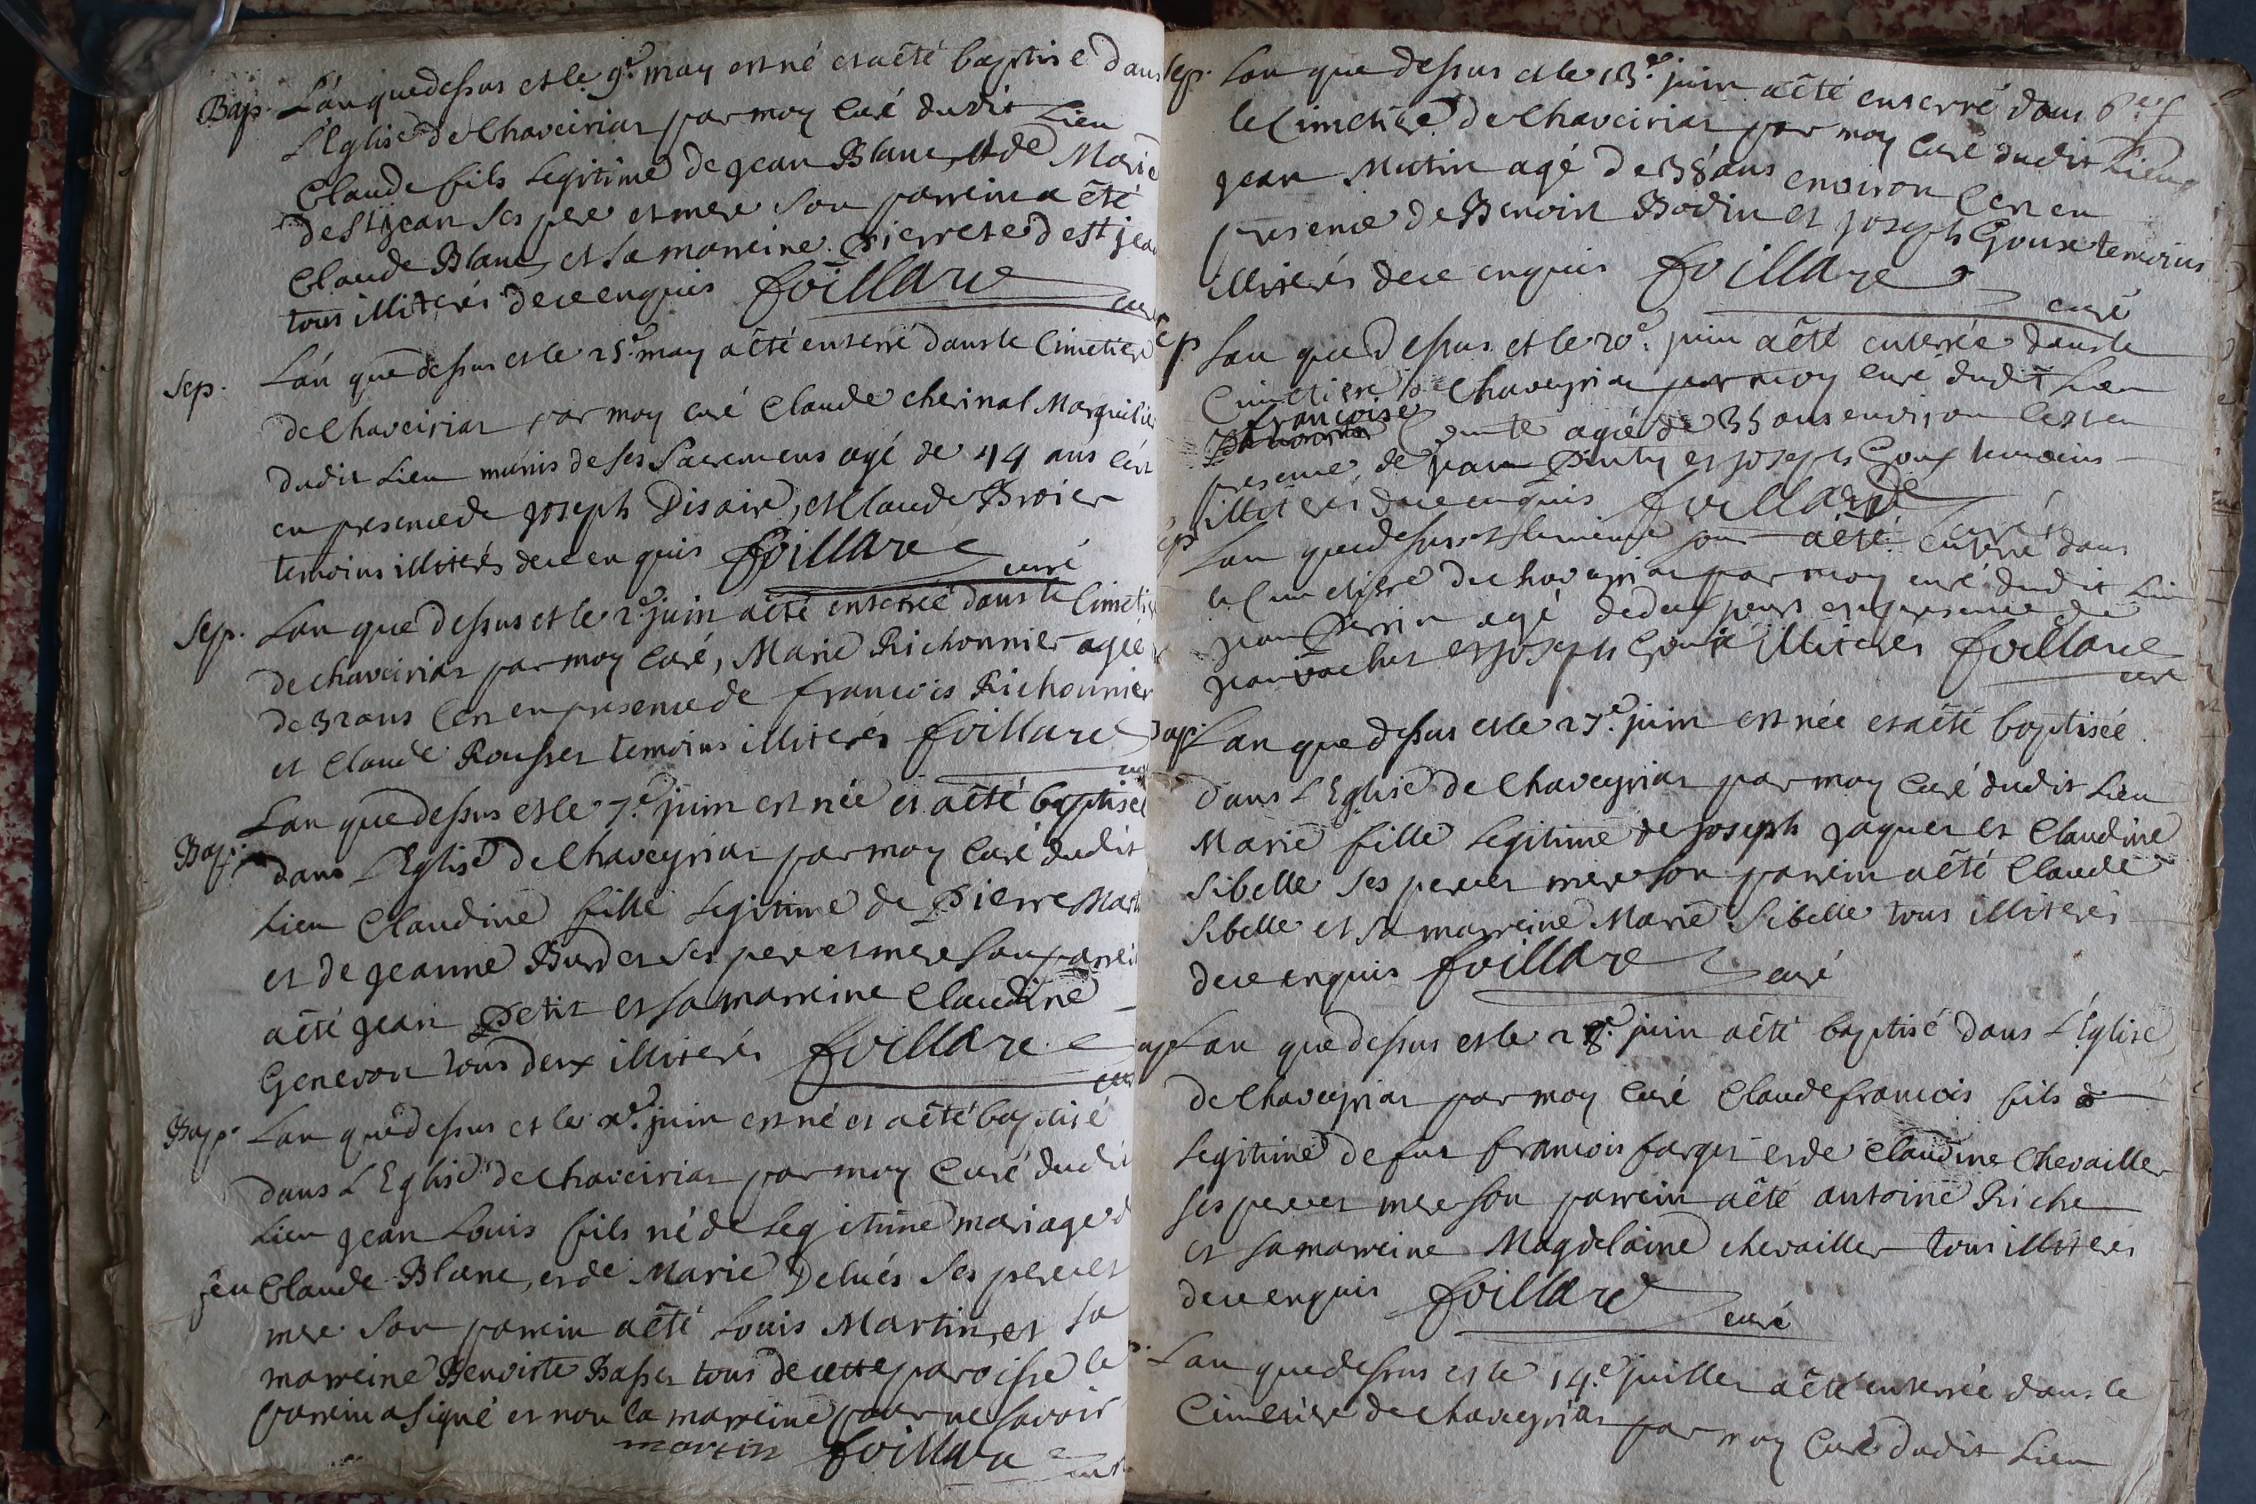 Bap. L'an que dessus et le 9e. may est né et a êté baptisé dans
L'Eglise de Chaveirias par moy Curé dudit Lieu
Claude fils Legitime de jean Blanc, et de Marie
de St jean ses pere et mere son parrein a êté
Claude Blanc, et sa marreine Pierrete de St jean
tous illiterés de ce enquis foillare curé
Sep. L'an que dessus et le 25e. may a êté enterré dans le Cimetiere
de Chaveirias par moy curé Claude cherinal Marguillier
dudit Lieu munis de ses Sacremens agé de 44 ans c'est
en presence de joseph Disair, et Claude Broier
temoins illiterés de ce enquis foillare curé
Sep. L'an que dessus et le 2e juin a êté enterrée dans le Cimetiere
de chaveirias par moy Curé, Marie Richonnier agée
de 32 ans C'est en presence de francois Richonnier
et Claude Rousset temoins illiterés foillare
Bap. L'an que dessus et le 7e. juin est née et a êté baptisée
dans L'Eglise de Chaveyrias par moy Curé dudit
Lieu Claudine fille Legitime de Pierre
et de jeanne Burdet ses pere et mere son parrein
a êté jean Petit et sa marreine Claudine
Genevon tous deux illiterés foillare curé
Bap. L'an que dessus et le juin est né et a êté baptisé
dans L'Eglise de Chaveirias par moy Curé dudit
Lieu jean Louis fils né de Legitime mariage de
feu Claude Blanc, et de Marie Delués ses pere et
mere son parrein a êté Louis Martin, et sa
marreine Benoiste Basset tous de cette paroisse le
parrein a signé et non la marreine pour ne savoir
martin foillare curé
Sep. L'an que dessus et le 13e juin a êté enterré dans
le Cimetiere de Chaveirias par moy Curé dudit Lieu
jean Mutin agé de 38 ans environ C'est en
presence de Benoist Bodin et joseph Goux temoins
illiterés de ce enquis foillare curé
Sep L'an que dessus et le 20e. juin a êté enterrée dans le
Cimetiere de Chaveyrias par moy curé dudit Lieu
françoise
agée de 35 ans environ C'est en
presence de et joseph Goux temoins
illiterés de ce enquis foillare curé
Sep L'an que dessus et le meme jour a êté enterré dans
le Cimetiere de chaveyrias par moy curé dudit Lieu
jean Perrin agé de deux jours en presence de
jean vachet et joseph Goux illiterés foillare curé
Bap L'an que dessus et le 27e. juin est née et a êté baptisée
dans L'Eglise de Chaveyrias par moy Curé dudit Lieu
Marie fille Legitime de joseph jaquet et Claudine
Sibelle ses pere et mere son parrein a êté Claude
Sibelle et sa marreine Marie Sibelle tous illiterés
de ce enquis foillare curé
Bap L'an que dessus et le 28e. juin a êté baptisé dans L'Eglise
de Chaveyrias par moy Curé Claude francois fils
Legitime de fut francois farget et de Claudine Chevailler
ses pere et mere son parrein a êté antoine Riche
et sa marreine Magdelaine chevailler tous illiterés
de ce enquis foillare curé
L'an que dessus et le 14e. juillet a êté enterrée dans le
Cimetiere de chaveyrias par moy Curé dudit Lieu